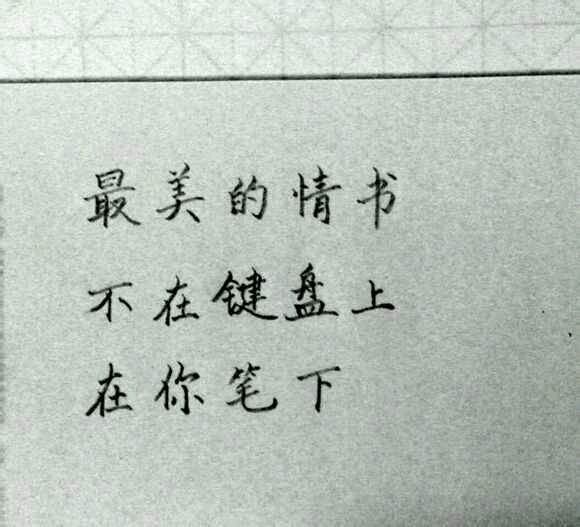 最美的情书
不在键盘上
在你笔下